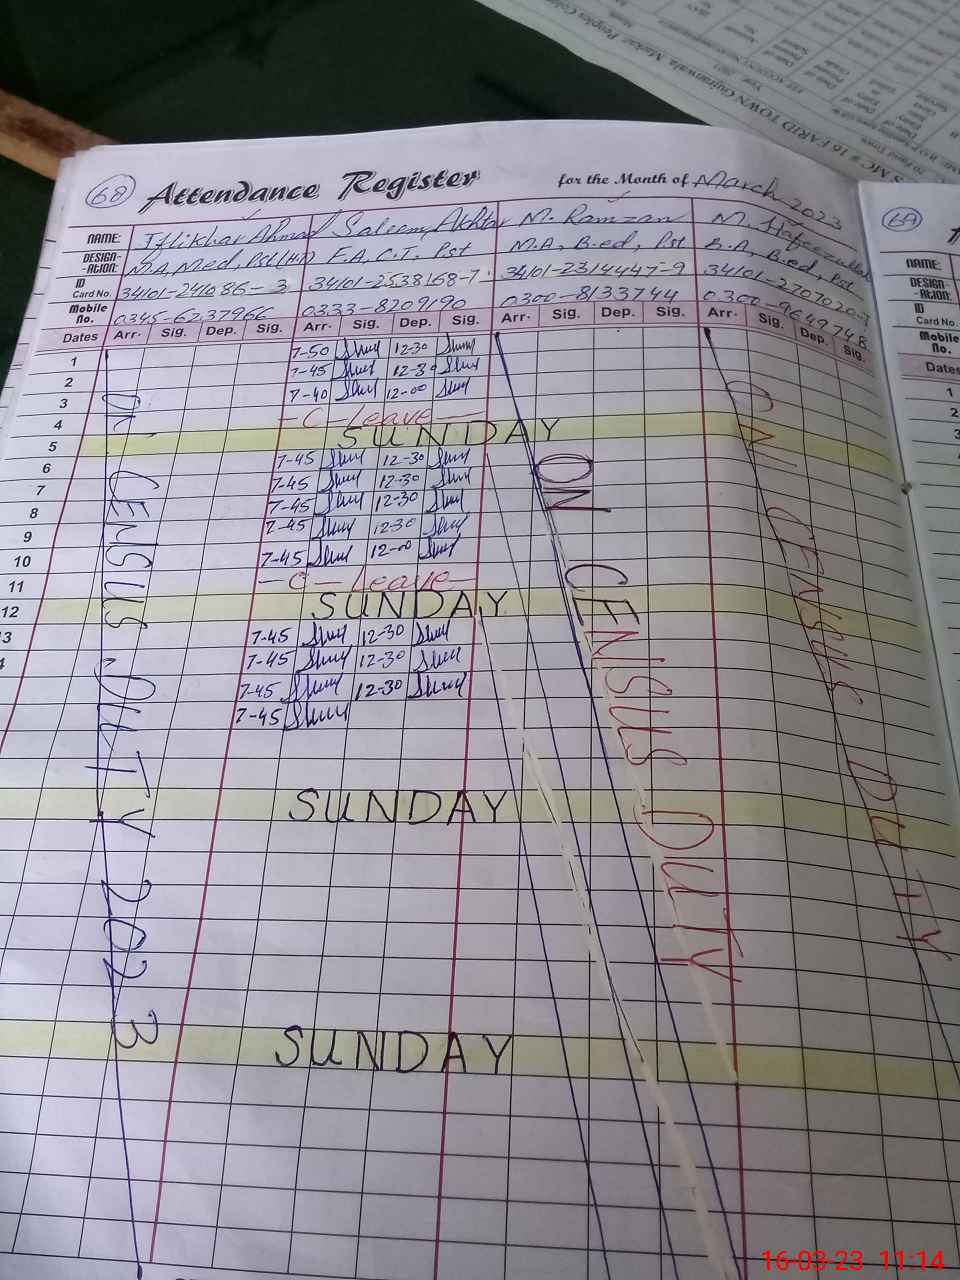 68 Attendance Register for the Month of March 2023
NAME: Iftikhar Ahmad Saleem Akhtar M. Ramzan M. Hafeezullah
DESIGN--ATION: M.A, M.ed, Pst (H.T) F.A, C.T, Pst M.A, B.ed, Pst B.A, B.ed, Pst
ID Card No. 34101-241086-3 34101-2538168-7 34101-2314447-9 34101-270702
Mobile No. 0345-6237966 0333-8209190 0300-8133744 0300-9649748
Dates Arr. Sig. Dep. Sig. Arr. Sig. Dep. Sig. Arr. Sig. Dep. Sig. Arr. Sig. Dep. Sig.
1 7-50 12-30
2 7-45 12-30
3 7-40 12-00
4 - C - Leave -
5 SUNDAY
6 7-45 12-30
7 7-45 12-30
8 7-45 12-30
9 7-45 12-30
10 7-45 12-00
11 - C - Leave -
12 SUNDAY
13 7-45 12-30
4 7-45 12-30
7-45 12-30
7-45
SUNDAY
SUNDAY
ON CENSUS DUTY 2023
ON CENSUS DUTY
ON CENSUS DUTY
69
NAME:
DESIGN--ATION:
ID Card No.
Mobile No.
Dates
1
2
3
MC # 16 FARID TOWN Gujranwala
16-03-23 11:14